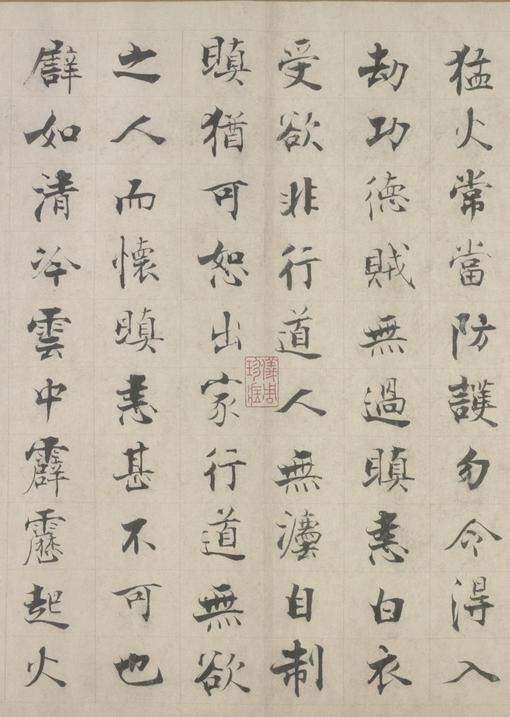 猛火常當防護勿令得入
劫功德賊無過瞋恚白衣
受欲非行道人無灋自制
瞋猶可恕出家行道無欲
之人而懷瞋恚甚不可也
譬如清冷雲中霹靂起火
儀周珍藏